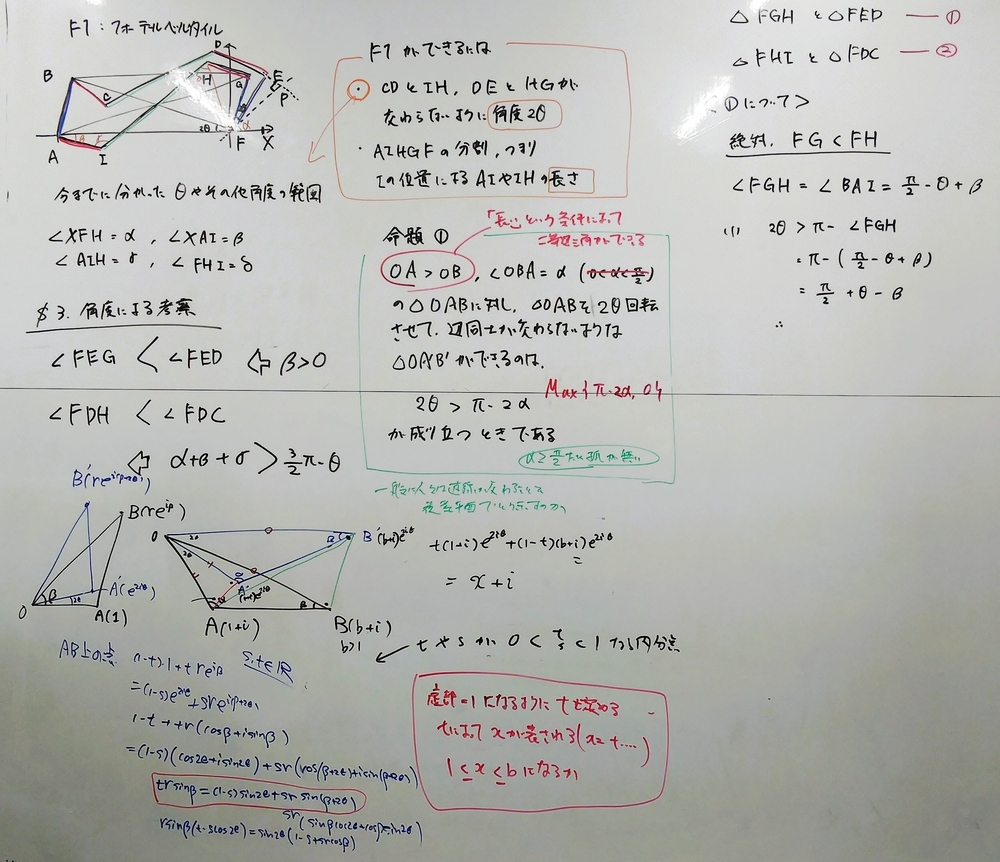 F1：フォーテルベルタイル
B
D
H
G
E
P
C
2θ
α
A
I
F
X
今までに分かった θやその他角度の範囲
∠XFH = α , ∠XAI = β
∠AIH = γ , ∠FHI = δ
§3. 角度による考察
∠FEG < ∠FED ⇐ β>0
∠FDH < ∠FDC
⇐ α+β+γ > 3/2π-θ
F1ができるには
・ CDとIH, DEとHGが
交わらないように 角度2θ
・ AIHGFの分割, つまり
Iの位置によるAIやIHの長さ
命題①
「長い」という条件によって
OA > OB , ∠OBA = α (0<α<π/2)
の△OABに対し, △OABを2θ回転
させて, 辺同士が交わらないような
△OA'B'ができるのは,
Max{π-2α, 0}
2θ > π-2α
が成り立つときである
△FGH と △FED ―①
△FHI と △FDC ―②
<①について>
絶対, FG < FH
∠FGH = ∠BAI = π/2 - θ + β
(1) 2θ > π - ∠FGH
= π - (π/2 - θ + β)
= π/2 + θ - β
∴
B'(re^i(β+2θ))
B(re^iβ)
A'(e^2iθ)
O
β
2θ
A(1)
O
2θ
B'(b+i)e^2iθ
A'
A(1+i)
B(b+i)
b>1
t(1+i)e^2iθ + (1-t)(b+i)e^2iθ
= x + i
AB上の点 (1-t)・1 + t re^iβ s,t∈ℝ
= (1-s)e^2iθ + sre^i(β+2θ)
1-t + tr(cosβ+isinβ)
= (1-s)(cos2θ+isin2θ) + sr(cos(β+2θ)+isin(β+2θ))
trsinβ = (1-s)sin2θ + sr sin(β+2θ)
sr(sinβcos2θ+cosβsin2θ)
rsinβ(t-scos2θ) = sin2θ(1-s+srcosβ)
虚部=1になるように tを定める
tによって xが表される(x=t....)
1 ≤ x ≤ b になるか